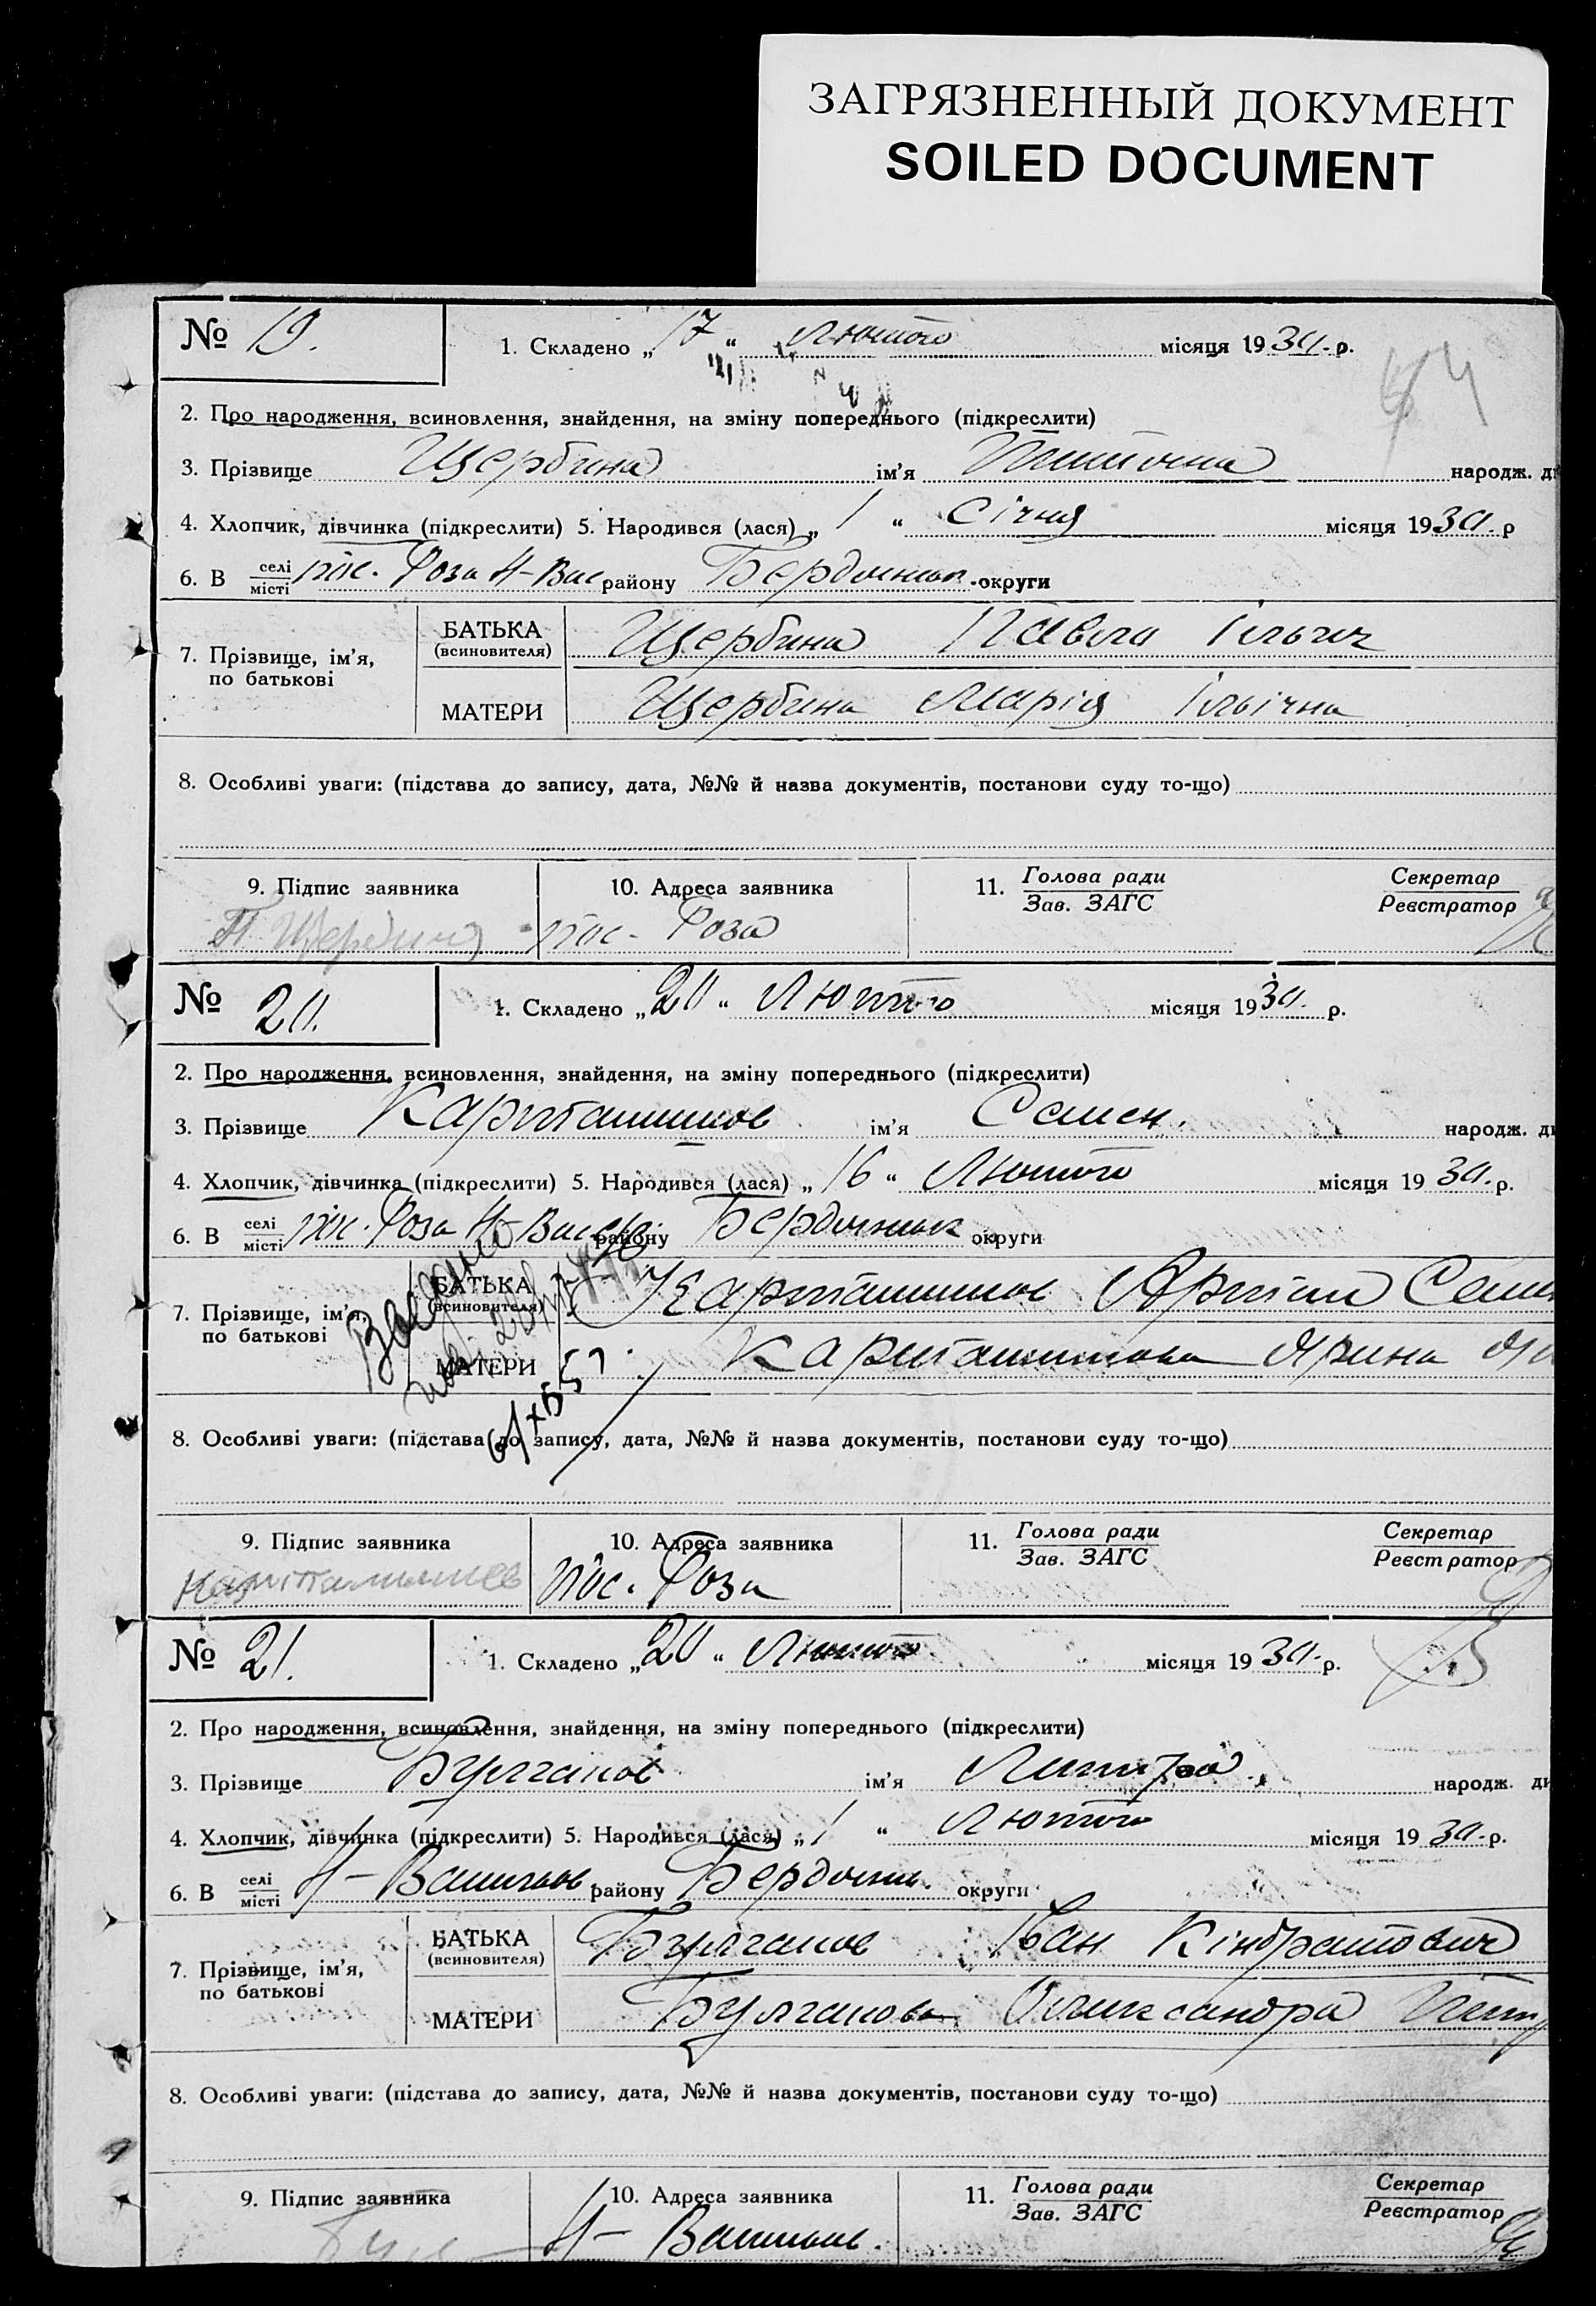 ЗАГРЯЗНЕННЫЙ ДОКУМЕНТ
SOILED DOCUMENT
№ 19.
1. Складено „17“ Лютого місяця 1930 р.
2. Про народження, всиновлення, знайдення, на зміну попереднього (підкреслити)
3. Прізвище Щербина ім’я народж. ди
4. Хлопчик, дівчинка (підкреслити) 5. Народився (лася) „1“ Січня місяця 1930. р
6. В селі/місті пос. Роза Н-Вас району Бердянськ. округи
7. Прізвище, ім’я, по батькові
БАТЬКА (всиновителя) Щербина Павло Ільич
МАТЕРИ Щербина Марія Ільічна
8. Особливі уваги: (підстава до запису, дата, №№ й назва документів, постанови суду то-що)
9. Підпис заявника
10. Адреса заявника
11. Голова ради/Зав. ЗАГС
Секретар/Реєстратор
П Щербина пос. Роза
№ 20.
1. Складено „20“ Лютого місяця 1930. р.
2. Про народження, всиновлення, знайдення, на зміну попереднього (підкреслити)
3. Прізвище ім’я Семен. народж. ди
4. Хлопчик, дівчинка (підкреслити) 5. Народився (лася) „16“ Лютого місяця 1930. р.
6. В селі/місті пос. Роза Н-Вас району Бердянськ округи
7. Прізвище, ім’я, по батькові
БАТЬКА (всиновителя)
МАТЕРИ
8. Особливі уваги: (підстава до запису, дата, №№ й назва документів, постанови суду то-що)
9. Підпис заявника
10. Адреса заявника
11. Голова ради/Зав. ЗАГС
Секретар/Реєстратор
пос. Роза
№ 21.
1. Складено „20“ Лютого місяця 1930. р.
2. Про народження, всиновлення, знайдення, на зміну попереднього (підкреслити)
3. Прізвище Булгаков ім’я народж. ди
4. Хлопчик, дівчинка (підкреслити) 5. Народився (лася) „1“ Лютого місяця 1930. р.
6. В селі/місті Н-Васильов. району Бердянськ. округи
7. Прізвище, ім’я, по батькові
БАТЬКА (всиновителя) Булгаков Іван Кіндратович
МАТЕРИ Булгакова Олександра
8. Особливі уваги: (підстава до запису, дата, №№ й назва документів, постанови суду то-що)
9. Підпис заявника
10. Адреса заявника
11. Голова ради/Зав. ЗАГС
Секретар/Реєстратор
Н-Васильов.